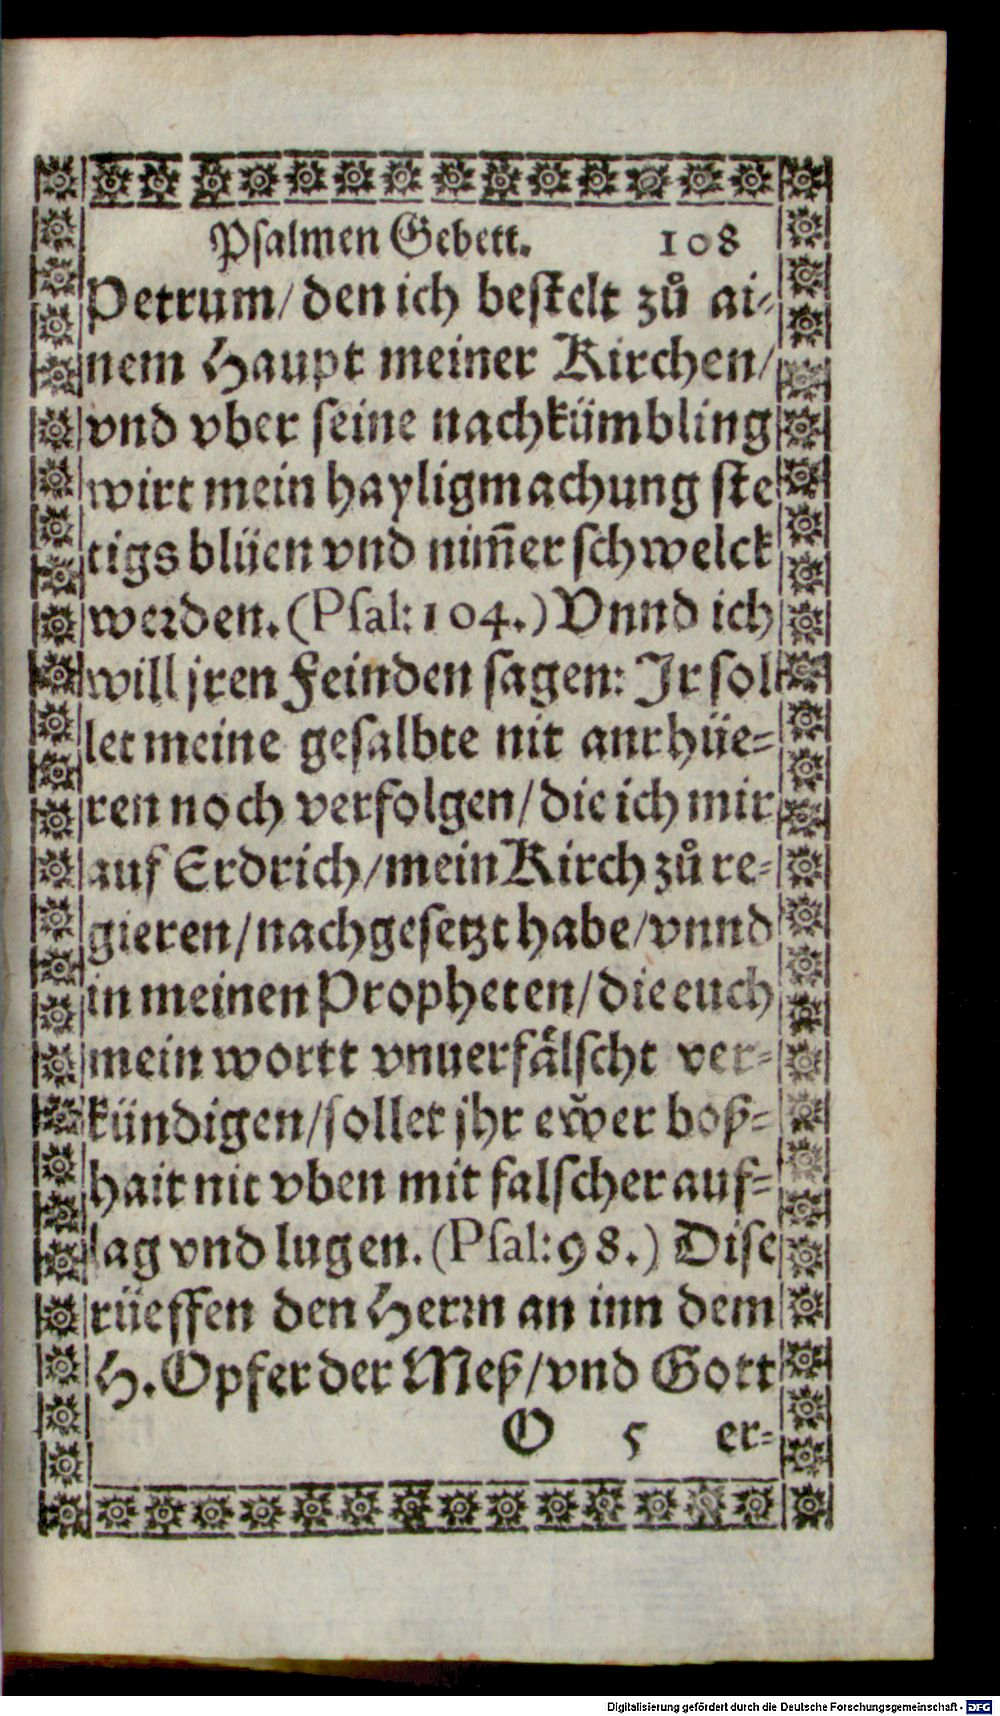 Psalmen Gebett. 108
Petrum/ den ich bestelt zů ai-
nem Haupt meiner Kirchen/
vnd vber seine nachkümbling
wirt mein hayligmachung ste
tigs blüen vnd nim̃er schwelck
werden. (Psal: 104.) Vnnd ich
will jren Feinden sagen: Jr sol
let meine gesalbte nit anrhüe-
ren noch verfolgen/ die ich mir
auf Erdrich/ mein Kirch zů re-
gieren/ nachgesetzt habe/ vnnd
in meinen Propheten/ die euch
mein wortt vnuerfaͤlscht ver-
kündigen/ sollet jhr ew̃er boß-
hait nit vben mit falscher auf-
lag vnd lugen. (Psal: 98.) Dise
rüeffen den Herrn an inn dem
H. Opfer der Meß/ vnd Gott
O 5 er-
Digitalisierung gefördert durch die Deutsche Forschungsgemeinschaft - DFG